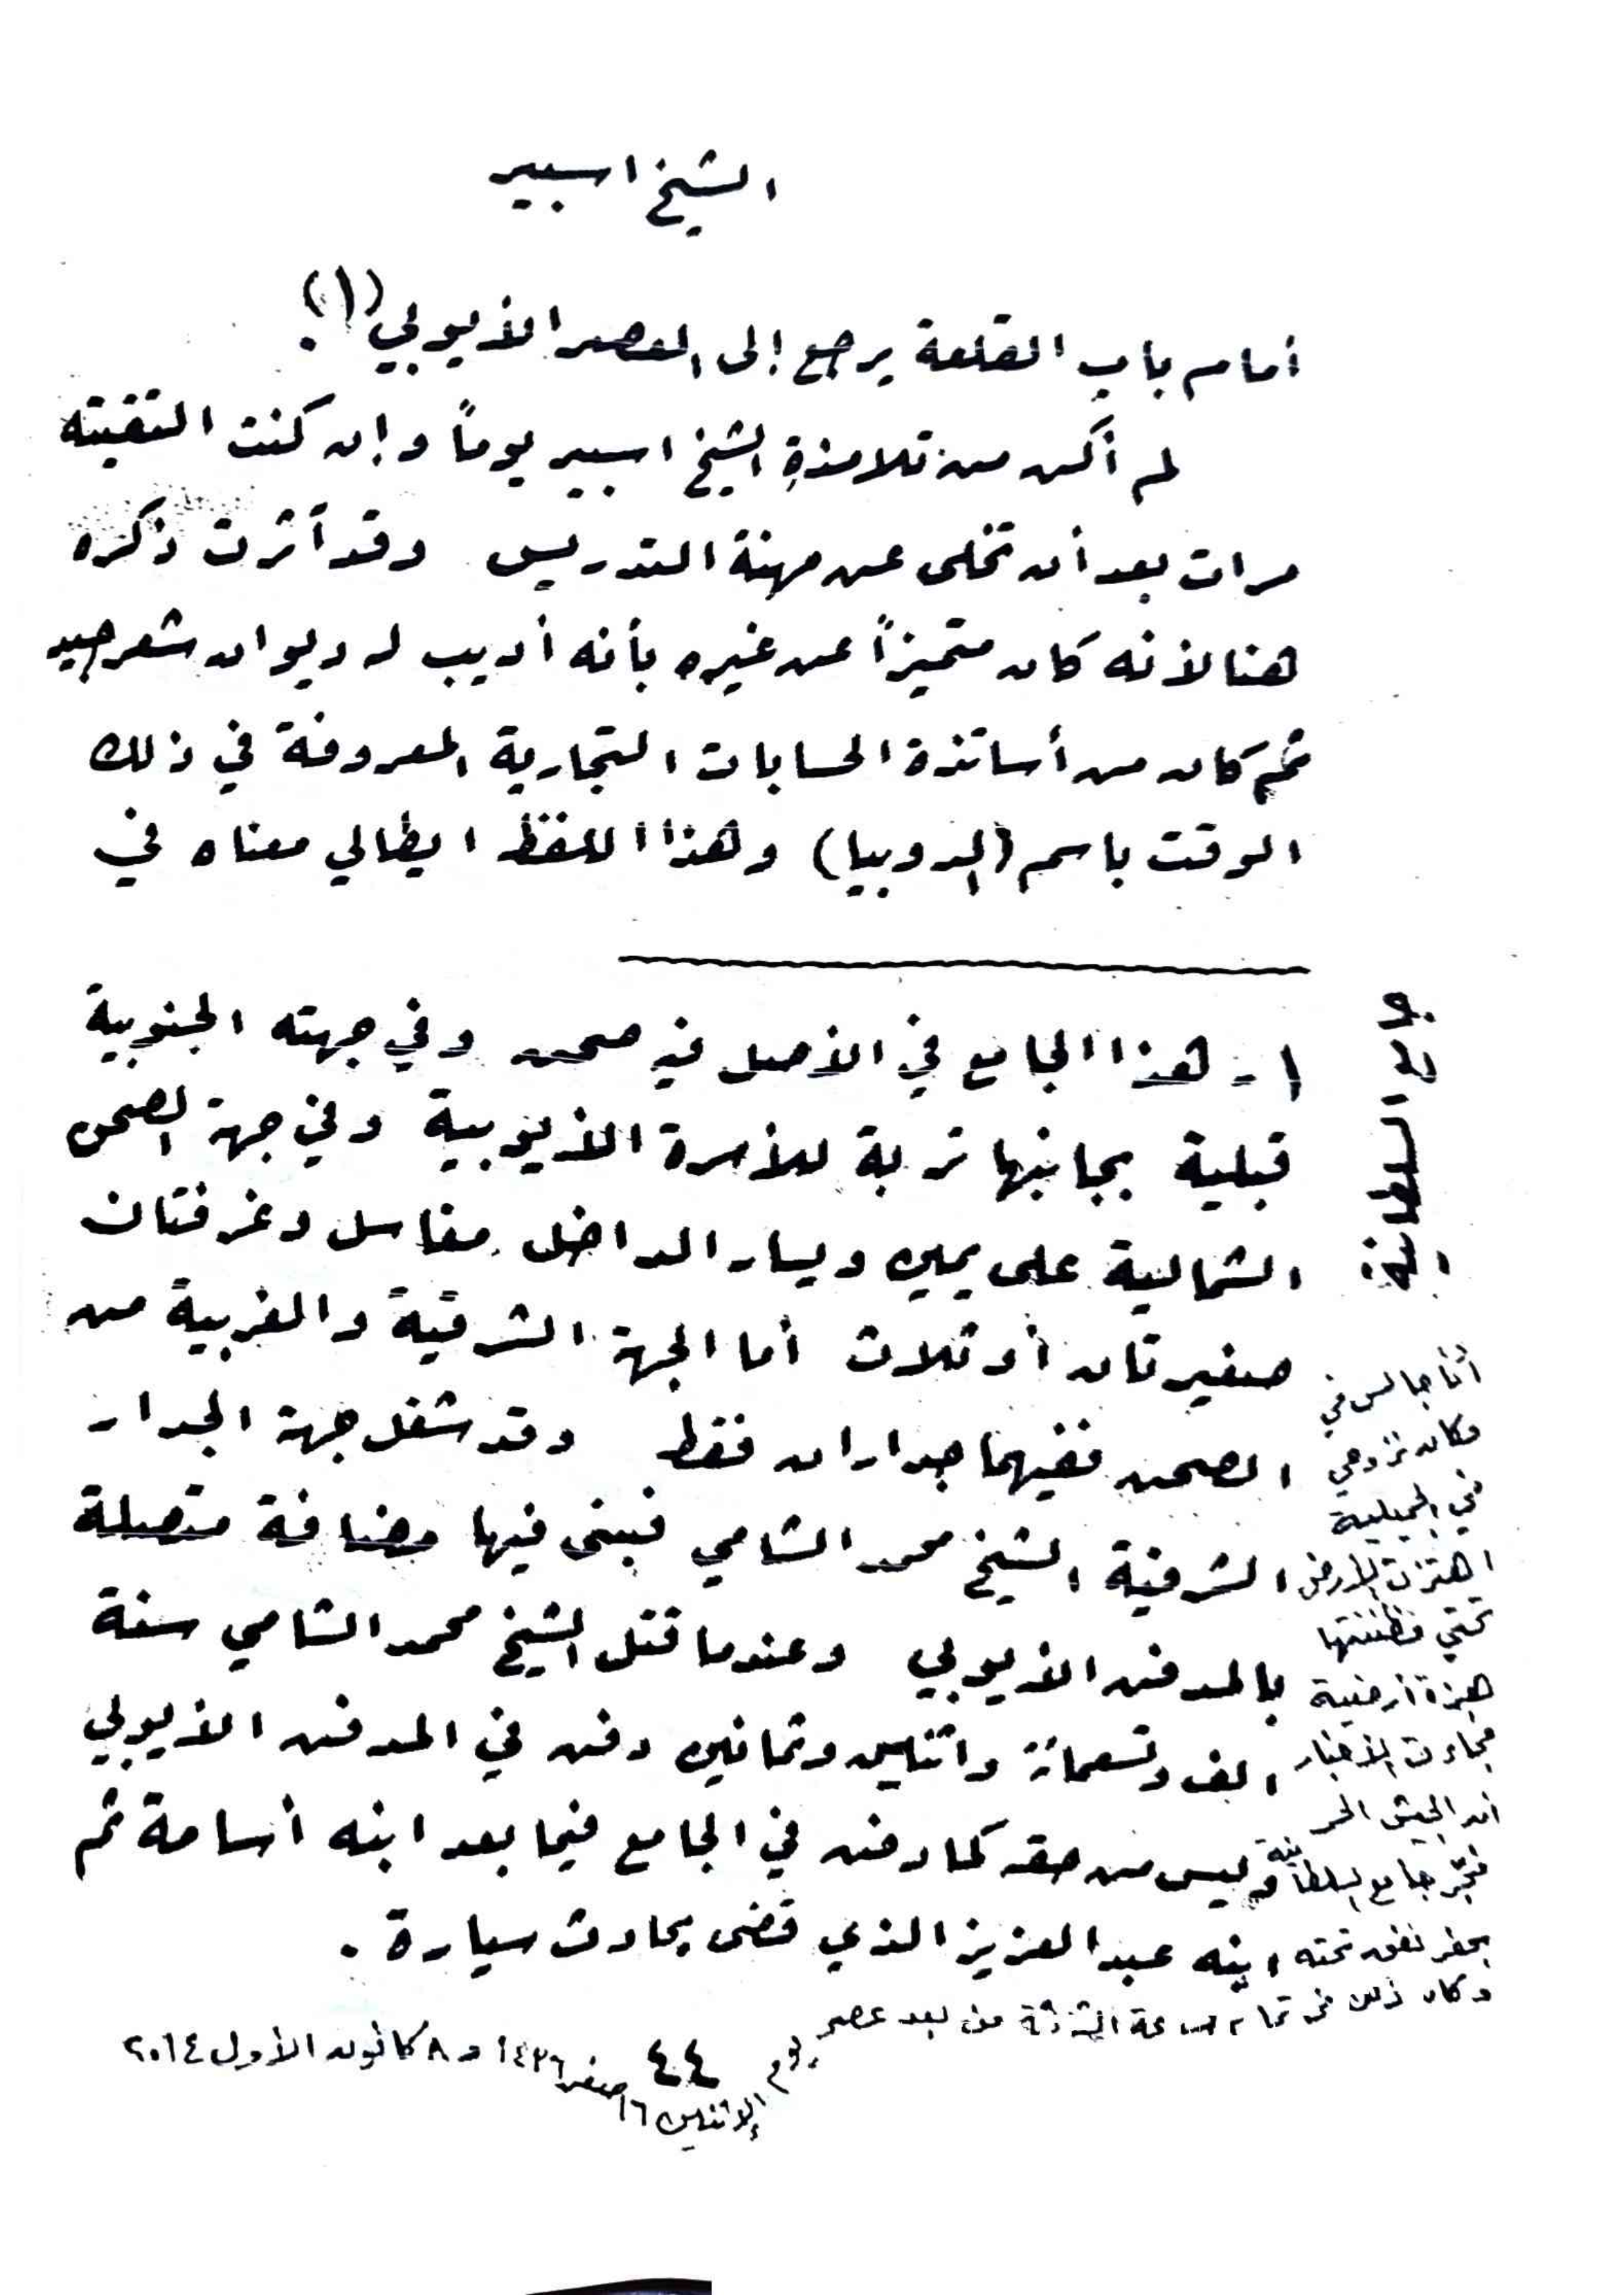 الشيخ اسبير
أمام باب القلعة يرجع إلى العصر الأيوبي (١).
لم أكن من تلامذةِ الشيخ اسبير يوماً وإن كنت التقيته
مرات بعد أن تخلى عن مهنة التدريس وقد آثرت ذكره
هنا لأنه كان متميزاً عن غيره بأنه أديب له ديوان شعر جيد
ثم كان من أساتذة الحسابات التجارية المعروفة في ذلك
الوقت باسم (الدوبيا) وهذا اللفظ ايطالي معناه في
١ - هذا الجامع في الأصل فيه صحن وفي جهته الجنوبية
قبلية بجانبها تربة للأسرة الأيوبية وفي جهة الصحن
الشمالية على يمين ويسار الداخل مغاسل وغرفتان
صغيرتان أو ثلاث أما الجهة الشرقية والغربية من
الصحن ففيهما جداران فقط وقد شغل جهة الجدار
الشرقية الشيخ محمد الشامي فبنى فيها مضافة متصلة
بالمدفن الأيوبي وعندما قتل الشيخ محمد الشامي سنة
الف وتسعمائة واثنين وثمانين دفن في المدفن الأيوبي
وليس من حقه كما دفن في الجامع فيما بعد ابنه أسامة ثم
ابنه عبد العزيز الذي قضى بحادث سيارة .
السلطانية
أنا جالس في
مكان نزوحي
في الجميلية
اهتزت الأرض
تحتي فظننتها
هزة أرضية
فجاءت الأخبار
أن الجيش الحر
فجّر جامع السلطانية
بحفر نفق تحته
وكان ذلك في تمام الساعة الثالثة من بعد عصر يوم
الإثنين ١٦ صفر ١٤٣٦ و ٨ كانون الأول ٢٠١٤
٤٤